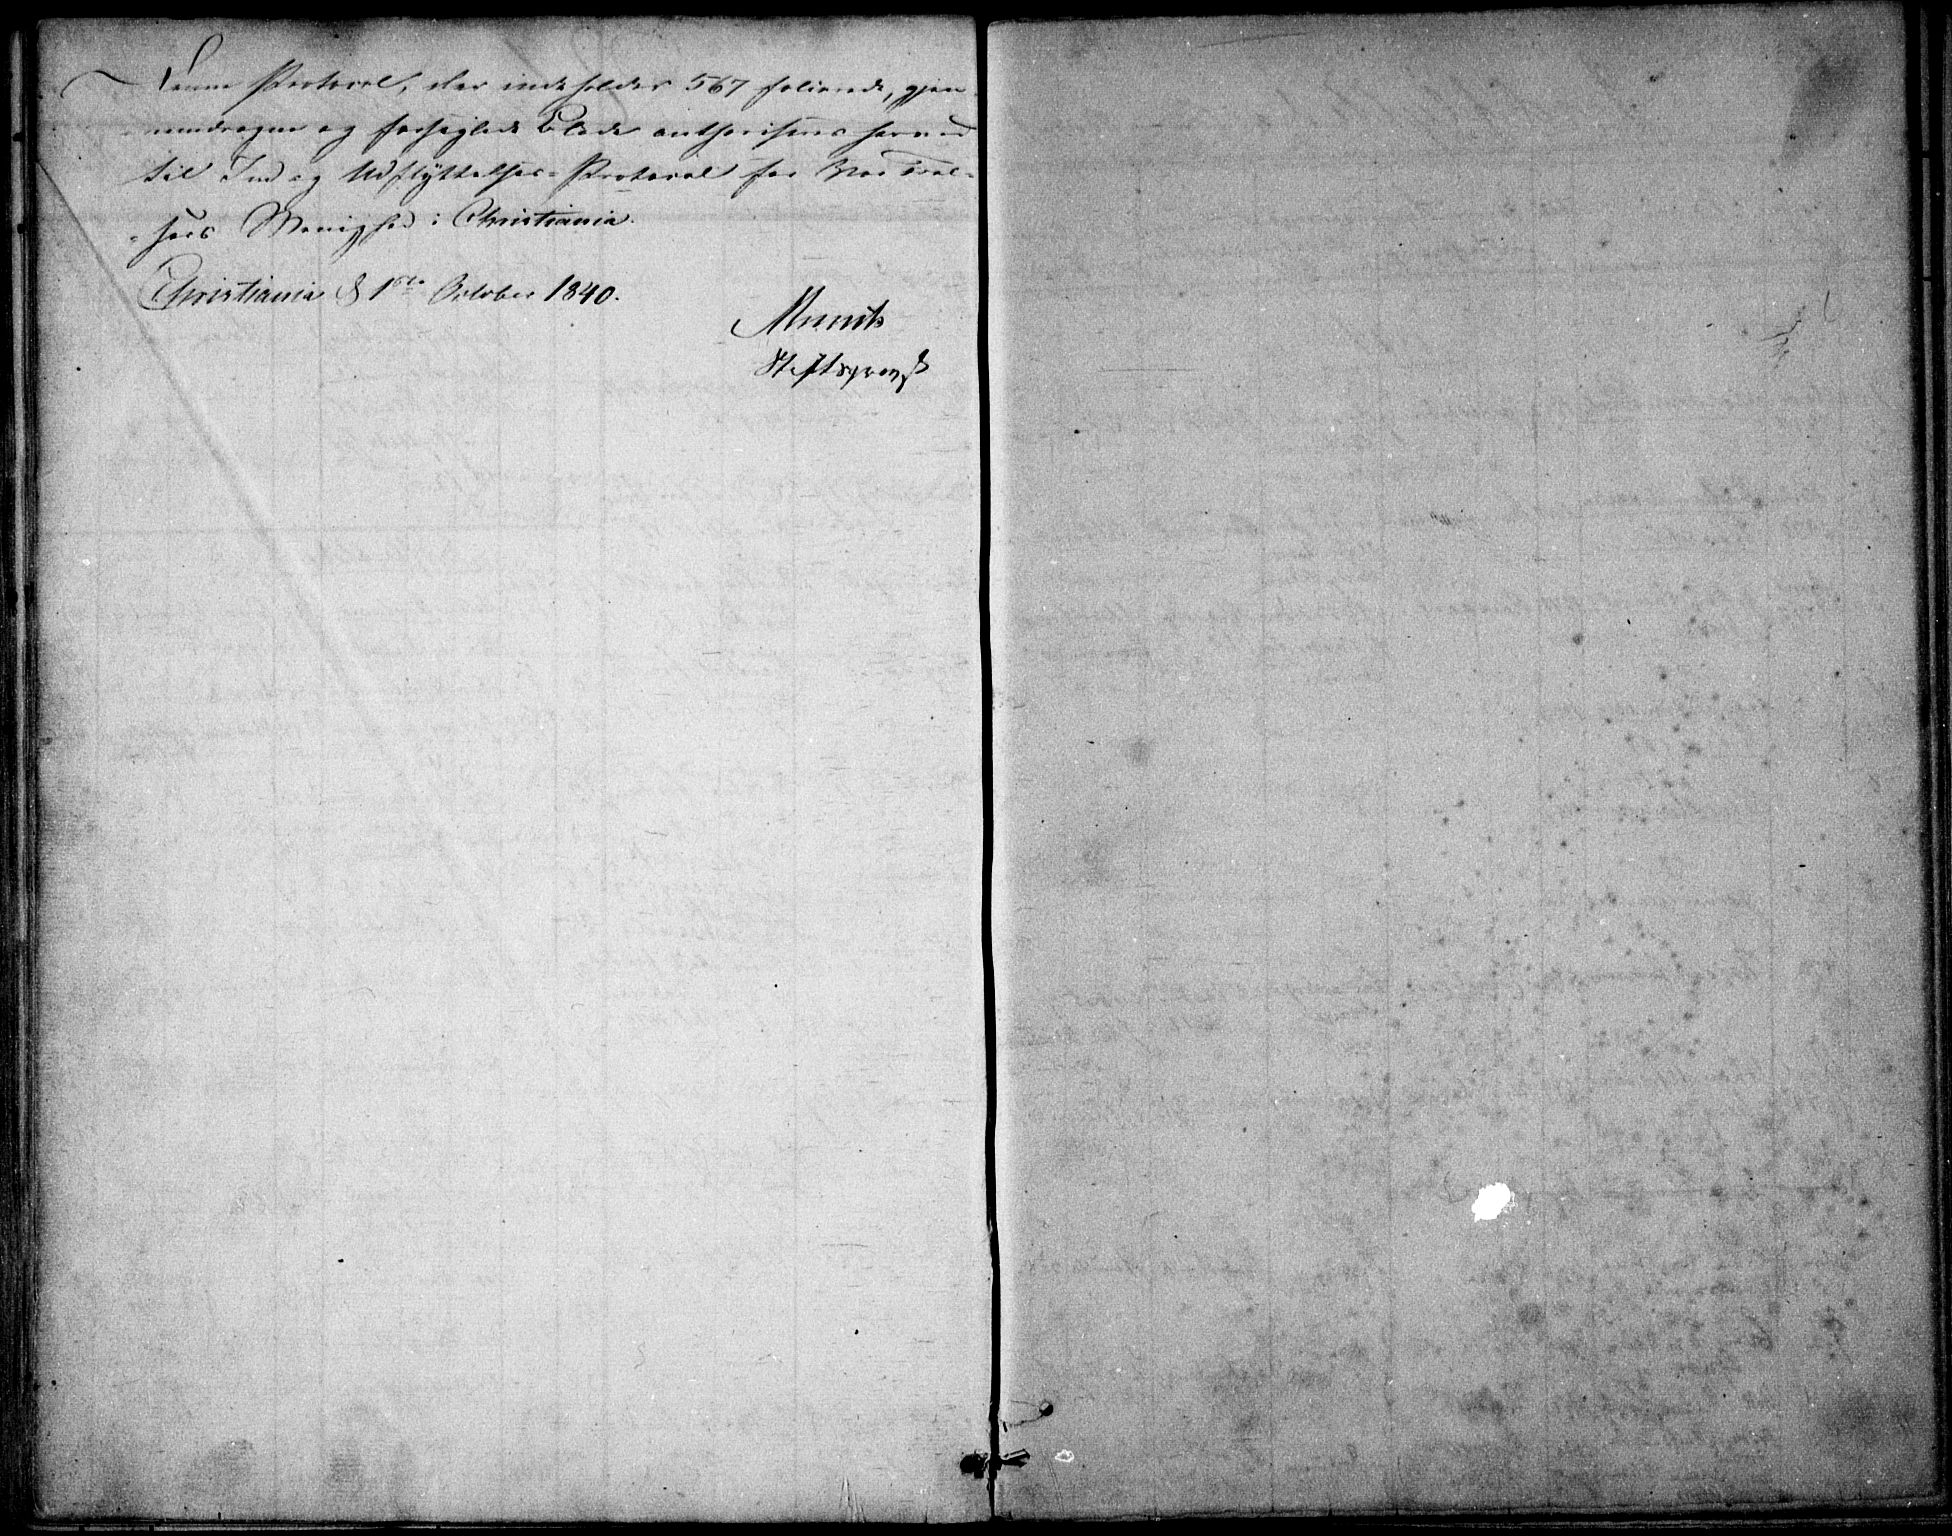 Denne Protocol, der indeholder 567 folierede, gjen-
nemdragne og forseglede Blade authoriseres herved
til Ind og Udflyttelses-Protocol for Vor Frel-
-sers Menighed i Christiania.
Christiania d 1ste October 1840.
Munch
Stiftsprovst